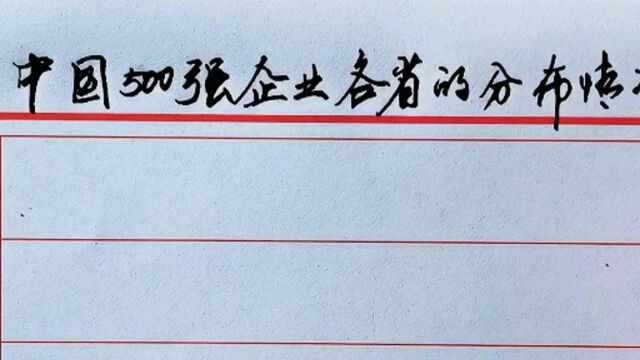 中国500强企业各省的分布情